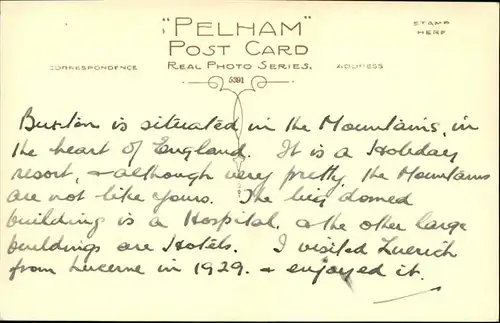 "PELHAM"
POST CARD
REAL PHOTO SERIES.
CORRESPONDENCE
ADDRESS
STAMP
HERE
5391
Buxton is situated in the Mountains, in
the heart of England. It is a Holiday
resort, & although very pretty, the Mountains
are not like yours. The big domed
building is a Hospital, & the other large
buildings are Hotels. I visited Zuerich
from Lucerne in 1929. & enjoyed it.